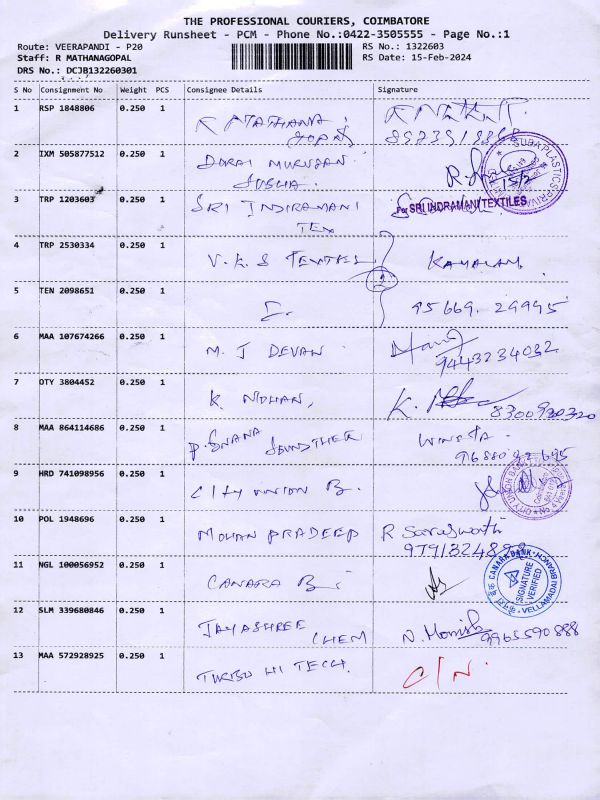 THE PROFESSIONAL COURIERS, COIMBATORE
Delivery Runsheet - PCM - Phone No.:0422-3505555 - Page No.:1
Route: VEERAPANDI - P20 RS No.: 1322603
Staff: R MATHANAGOPAL RS Date: 15-Feb-2024
DRS No.: DCJB132260301
S No Consignment No Weight PCS Consignee Details Signature
1 RSP 1848806 0.250 1
2 IXM 505877512 0.250 1 DORAI MURUGAN
15/2
3 TRP 1203603 0.250 1 SRI INDIRAMANI TEX For SRI INDRAMANI TEXTILES
4 TRP 2530334 0.250 1 V.K.S TEXTILES
5 TEN 2098651 0.250 1 95669. 29995
6 MAA 107674266 0.250 1 M. J DEVAN 9443234032
7 OTY 3804452 0.250 1 K MOHAN, K. 8300930320
8 MAA 864114686 0.250 1
9 HRD 741098956 0.250 1 CITY UNION B.
10 POL 1948696 0.250 1 MOHAN PRADEEP R
11 NGL 100056952 0.250 1 CANARA B
CANARA BANK SIGNATURE VERIFIED VELLAMADAI BRANCH
12 SLM 339680846 0.250 1 JAYASHREE CHEM N. Monish 9965590888
13 MAA 572928925 0.250 1 TURBO HI TECH. C/N.